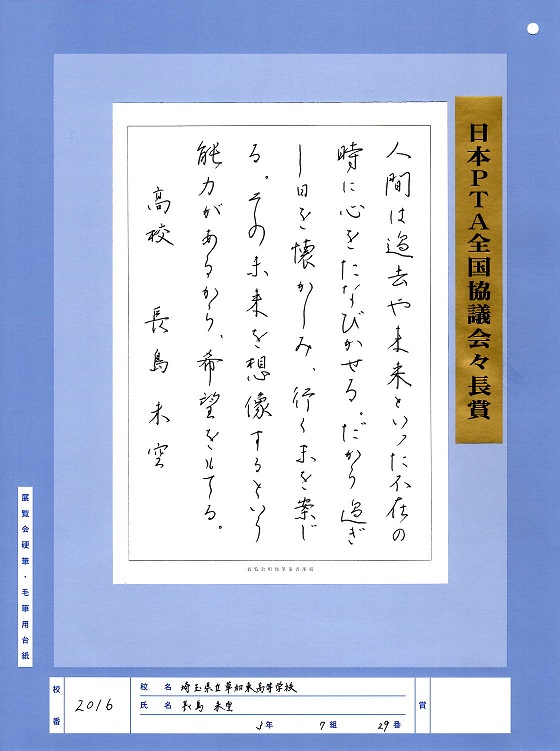 日本PTA全国協議会々長賞
人間は過去や未来といった不在の
時に心をたなびかせる。だから過ぎ
し日を懐かしみ、行く末を案じ
る。その未来を想像するという
能力があるから、希望をもてる。
高校 長島未空
展覧会硬筆・毛筆用台紙
校番 2016
校名 埼玉県立草加東高等学校
氏名 長島 未空
3年 7組 29番
賞